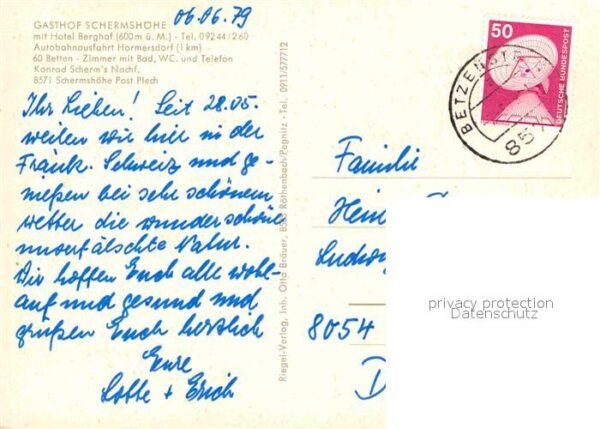 06.06.79
GASTHOF SCHERMSHÖHE
mit Hotel Berghof (600m ü. M.) - Tel. 09244/260
Autobahnausfahrt Hormersdorf (1 km)
60 Betten - Zimmer mit Bad, WC. und Telefon
Konrad Scherm's Nachf.
8571 Schermshöhe Post Plech
Ihr Lieben! Seit 28.05.
weilen wir hier in der
Fränk. Schweiz und ge-
nießen bei sehr schönem
Wetter die wunderschöne
unverfälschte Natur.
Wir hoffen Euch alle wohl-
auf und gesund und
grüßen Euch herzlich
Eure
Lotte + Erich
Riegel-Verlag, Inh. Otto Bräuer, 8505 Röthenbach/Pegnitz - Tel. 0911/577712
50
DEUTSCHE BUNDESPOST
BETZENST
857
Familie
Hein
Ludwig
8054
D
privacy protection
Datenschutz